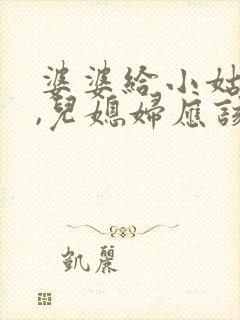 婆婆給小姑
,兒媳婦應該
凱麗